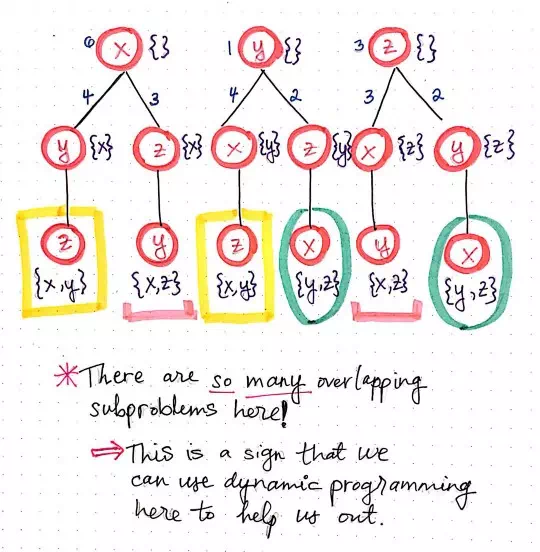 6 x {} 1 y {} 3 z {}
4 3 4 2 3 2
y {x} z {x} x {y} z {y} x {z} y {z}
z y z x y x
{x,y} {x,z} {x,y} {y,z} {x,z} {y,z}
* There are so many overlapping
subproblems here!
⇒ This is a sign that we
can use dynamic programming
here to help us out.